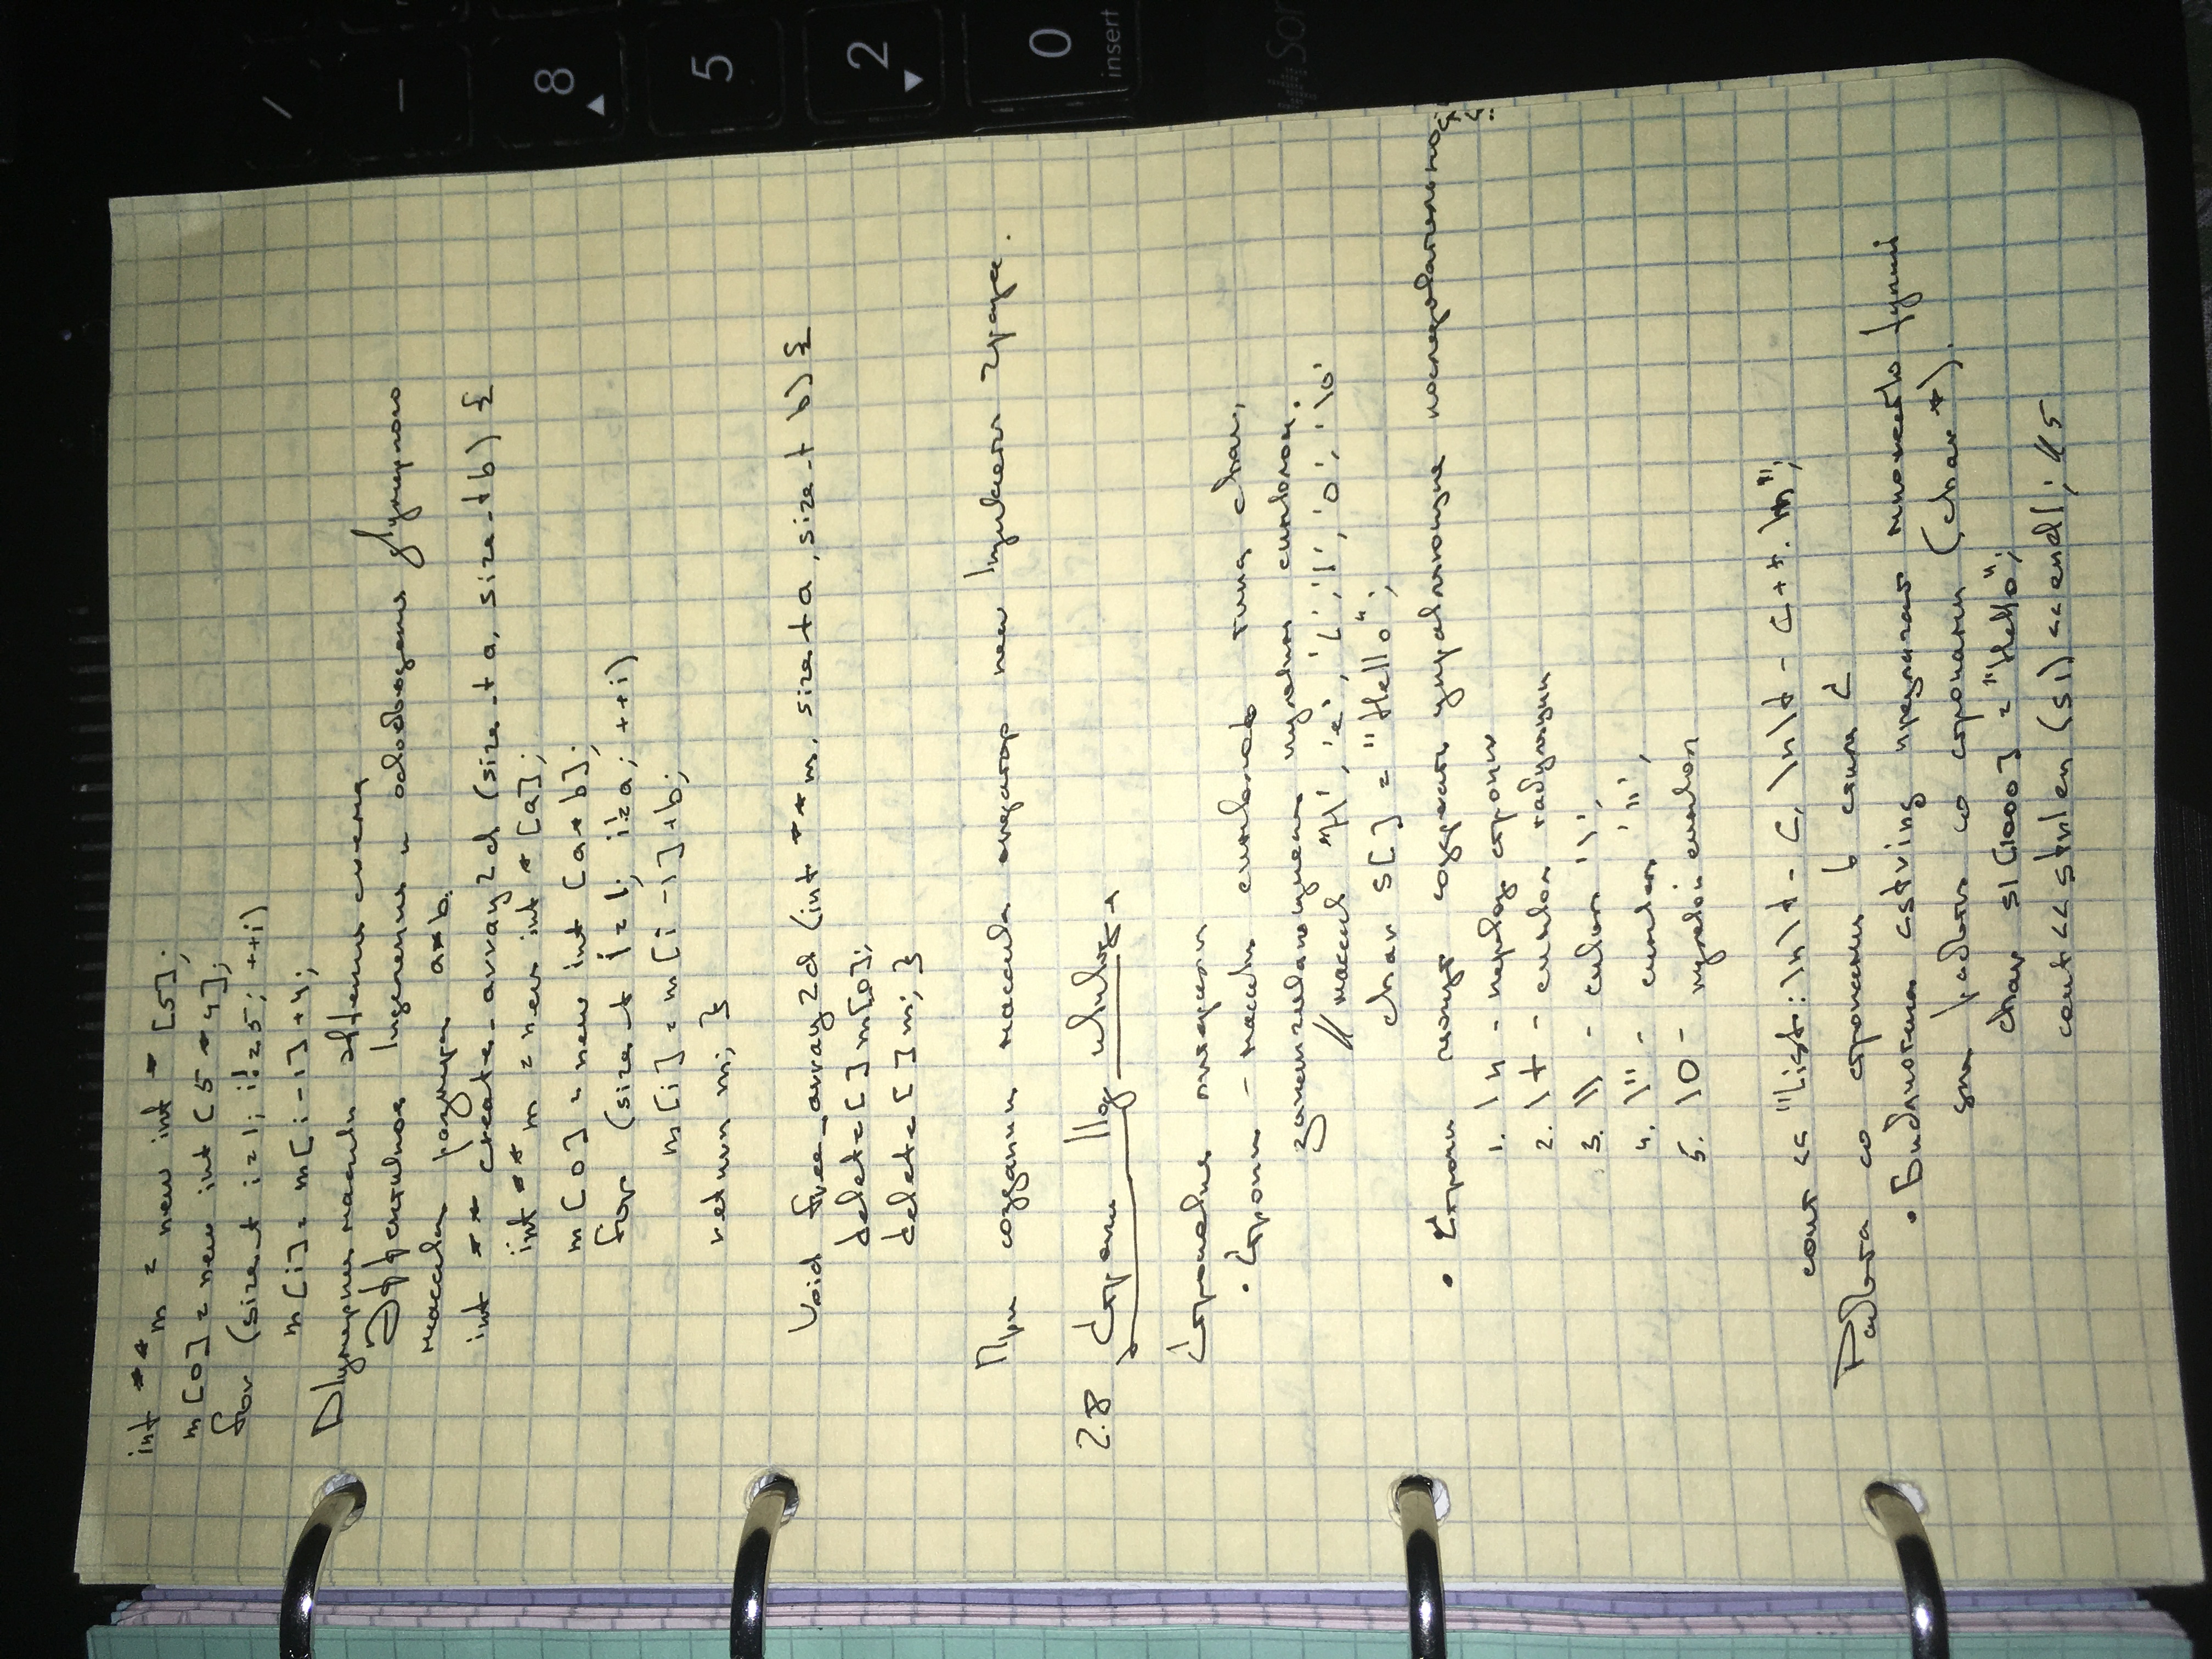 int **m = new int *[5];
m[0] = new int [5*4];
for (size_t i=1; i!=5; ++i)
m[i] = m[i-1]+4;
Двумерные массивы эффективная схема
Эффективное выделение и освобождение двумерного
массива размера a*b.
int ** create_array2d (size_t a, size_t b) {
int **m = new int *[a];
m[0] = new int [a*b];
for (size_t i=1; i!=a; ++i)
m[i] = m[i-1]+b;
return m; }
Void free_array2d (int **m, size_t a, size_t b) {
delete[] m[0];
delete[] m; }
При создании массива оператор new
2.8 Строки ввод и вывод
Строковые литералы
• Строки – массивы символов типа char,
заканчивающиеся нулевым символом.
// массив 'H', 'e', 'l', 'l', 'o', '\0'
char s[] = "Hello";
• Строки могут содержать управляющие последовательности:
1. \n – перевод строки
2. \t – символ табуляции
3. \\ – символ '\',
4. \" – символ '"',
5. \0 – нулевой символ
cout << "List:\n\t- C, \n\t- C++.\n";
Работа со строками в стиле C
• Библиотека cstring предлагает множество функций
для работы со строками (char*).
char s1[1000] = "Hello";
cout << strlen (s1) << endl; // 5
8
5
2
0
insert